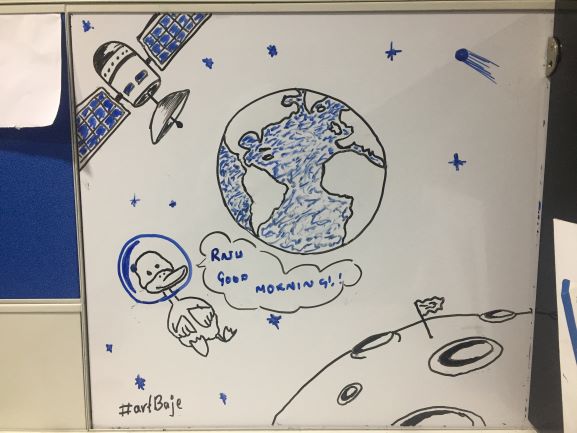 RAJU
GOOD MORNING!!
#artBaje